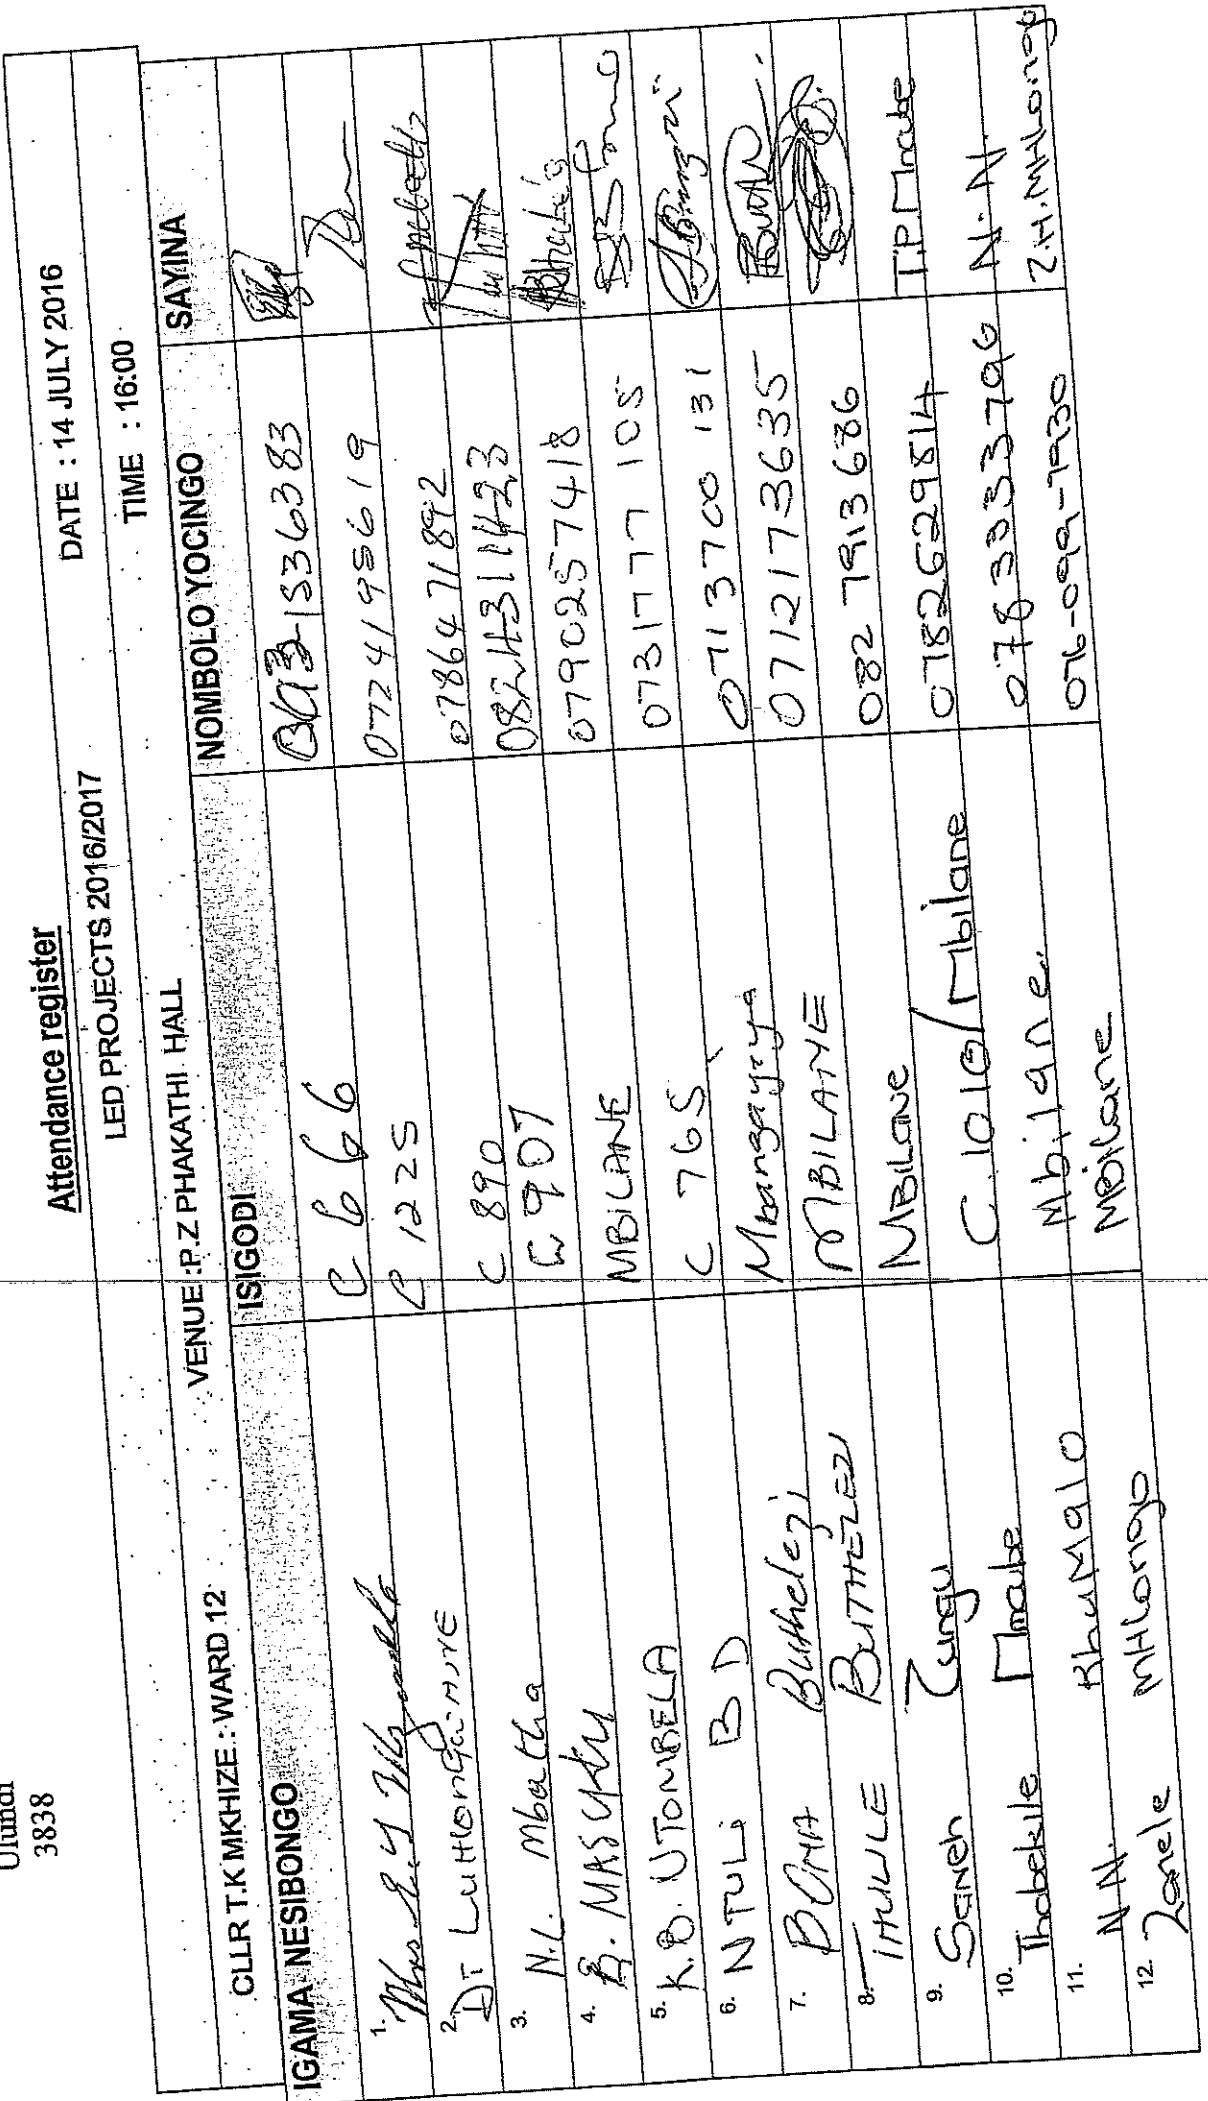 Ulundi
3838
Attendance register
LED PROJECTS 2016/2017 DATE : 14 JULY 2016
CLLR T.K MKHIZE : WARD 12 VENUE :P.Z PHAKATHI HALL TIME : 16:00
IGAMA NESIBONGO ISIGODI NOMBOLO YOCINGO SAYINA
1. Mrs C 666 1536383
2. DT C 1225 0724195619
3. N.L. Mbatha C 890 0786471892
4. B. MASUKU 907 0824311423
5. K.B. UTOMBELA MBILANE 0790257418
6. NTULI B D C 765 0731777 105
7. BONA Buthelezi Mbangayiya 0713700 131
8. THULILE BUTHELEZI MBILANE 0712173635
9. Saneh Zungu MBILANE 082 7913686
10. Thabekile Mncube C 1010/Mbilane 0782629814 T.P Mncube
11. N.N. KhuMalo Mbilane. 0783333796 N.N.
12. Zanele MHLongo MBilane 076-099-7930 Z.H.MHLongo